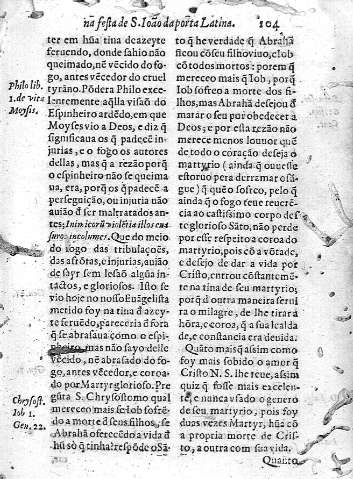 na festa de S. Ioão da porta Latina. 104
Philo lib.
1. de vita
Moysis.
ter em hũa tina de azeyte
feruendo, donde sahio não
queimado, nẽ vẽcido do fogo
go, antes vẽcedor do cruel
tyrãno. Põdera Philo excelentemente
aq̃lla visaõ do
Espinheiro ardẽdo, em que
Moyses vio a Deos, e diz q̃
significaua os q̃ padecẽ injurias,
e o fogo os autores
dellas, mas q̃ a rezão porq̃
o espinheiro não se queimaua,
era, porq̃ os q̃ padecẽ a
perseguição, ou injuria não
auião de ser maltratados antes;
Inimicorũ violẽtia illos euasuros
incolumes. Que do meio
do fogo das tribulações,
das afrõtas, e injurias, auião
de sayr sem lesaõ algũa intactos,
e gloriosos. Isto se
vio hoje no nosso Euãgelista
metido foy na tina d azeyte
feruẽdo, pareceria d fora
q̃ se abrasaua como o espinheiro,
mas não sayo delle
vẽcido, nẽ abrasado do fogo,
antes vẽcedor, e coroado
por Martyr glorioso. Pregũta
Chrysost.
Iob 1.
Gen. 22.
S. Chrysostomo qual
mereceo mais se Iob sofrẽdo
a morte d seus filhos, se
Abrahã oferecẽdo a vida d
hũ só q̃ tinha? respõde o Sãto
q̃ he verdade q̃ Abrahã
ficou cõ seu filho viuo, e Iob
cõ todos mortos: porem q̃
mereceo mais q̃ Iob, porq̃
Iob sofreo a morte dos filhos,
mas Abrahã desejou d
matar o seu por obedecer a
Deos; e por esta rezão não
merece menos louuor quẽ
de todo o coração deseja o
martyrio (ainda q̃ ouuesse
estoruo pera derramar o sãgue)
q̃ quẽ o sofreo, pelo q̃
ainda q̃ o fogo teue reuerẽcia
ao castissimo corpo deste
glorioso Sãto, não perde
por esse respeito a coroa do
martyrio, pois cõ a võtade,
e desejo de dar a vida por
Cristo, entrou cõstantemẽte
na tina de seu martyrio;
porq̃ d outra maneira seruira
o milagre, de lhe tirar a
hõra, e coroa, q̃ a sua lealdade,
e constancia era deuida.
Quãto mais q̃ assim como
foy mais sobido o amor q̃
Cristo N. S. lhe teue, assim
quiz q̃ fosse mais excelente,
e nunca vsado o genero
de seu martyrio, pois foy
duas vezes Martyr, hũa cõ
a propria morte de Cristo,
a outra com sua vida.
Quanto